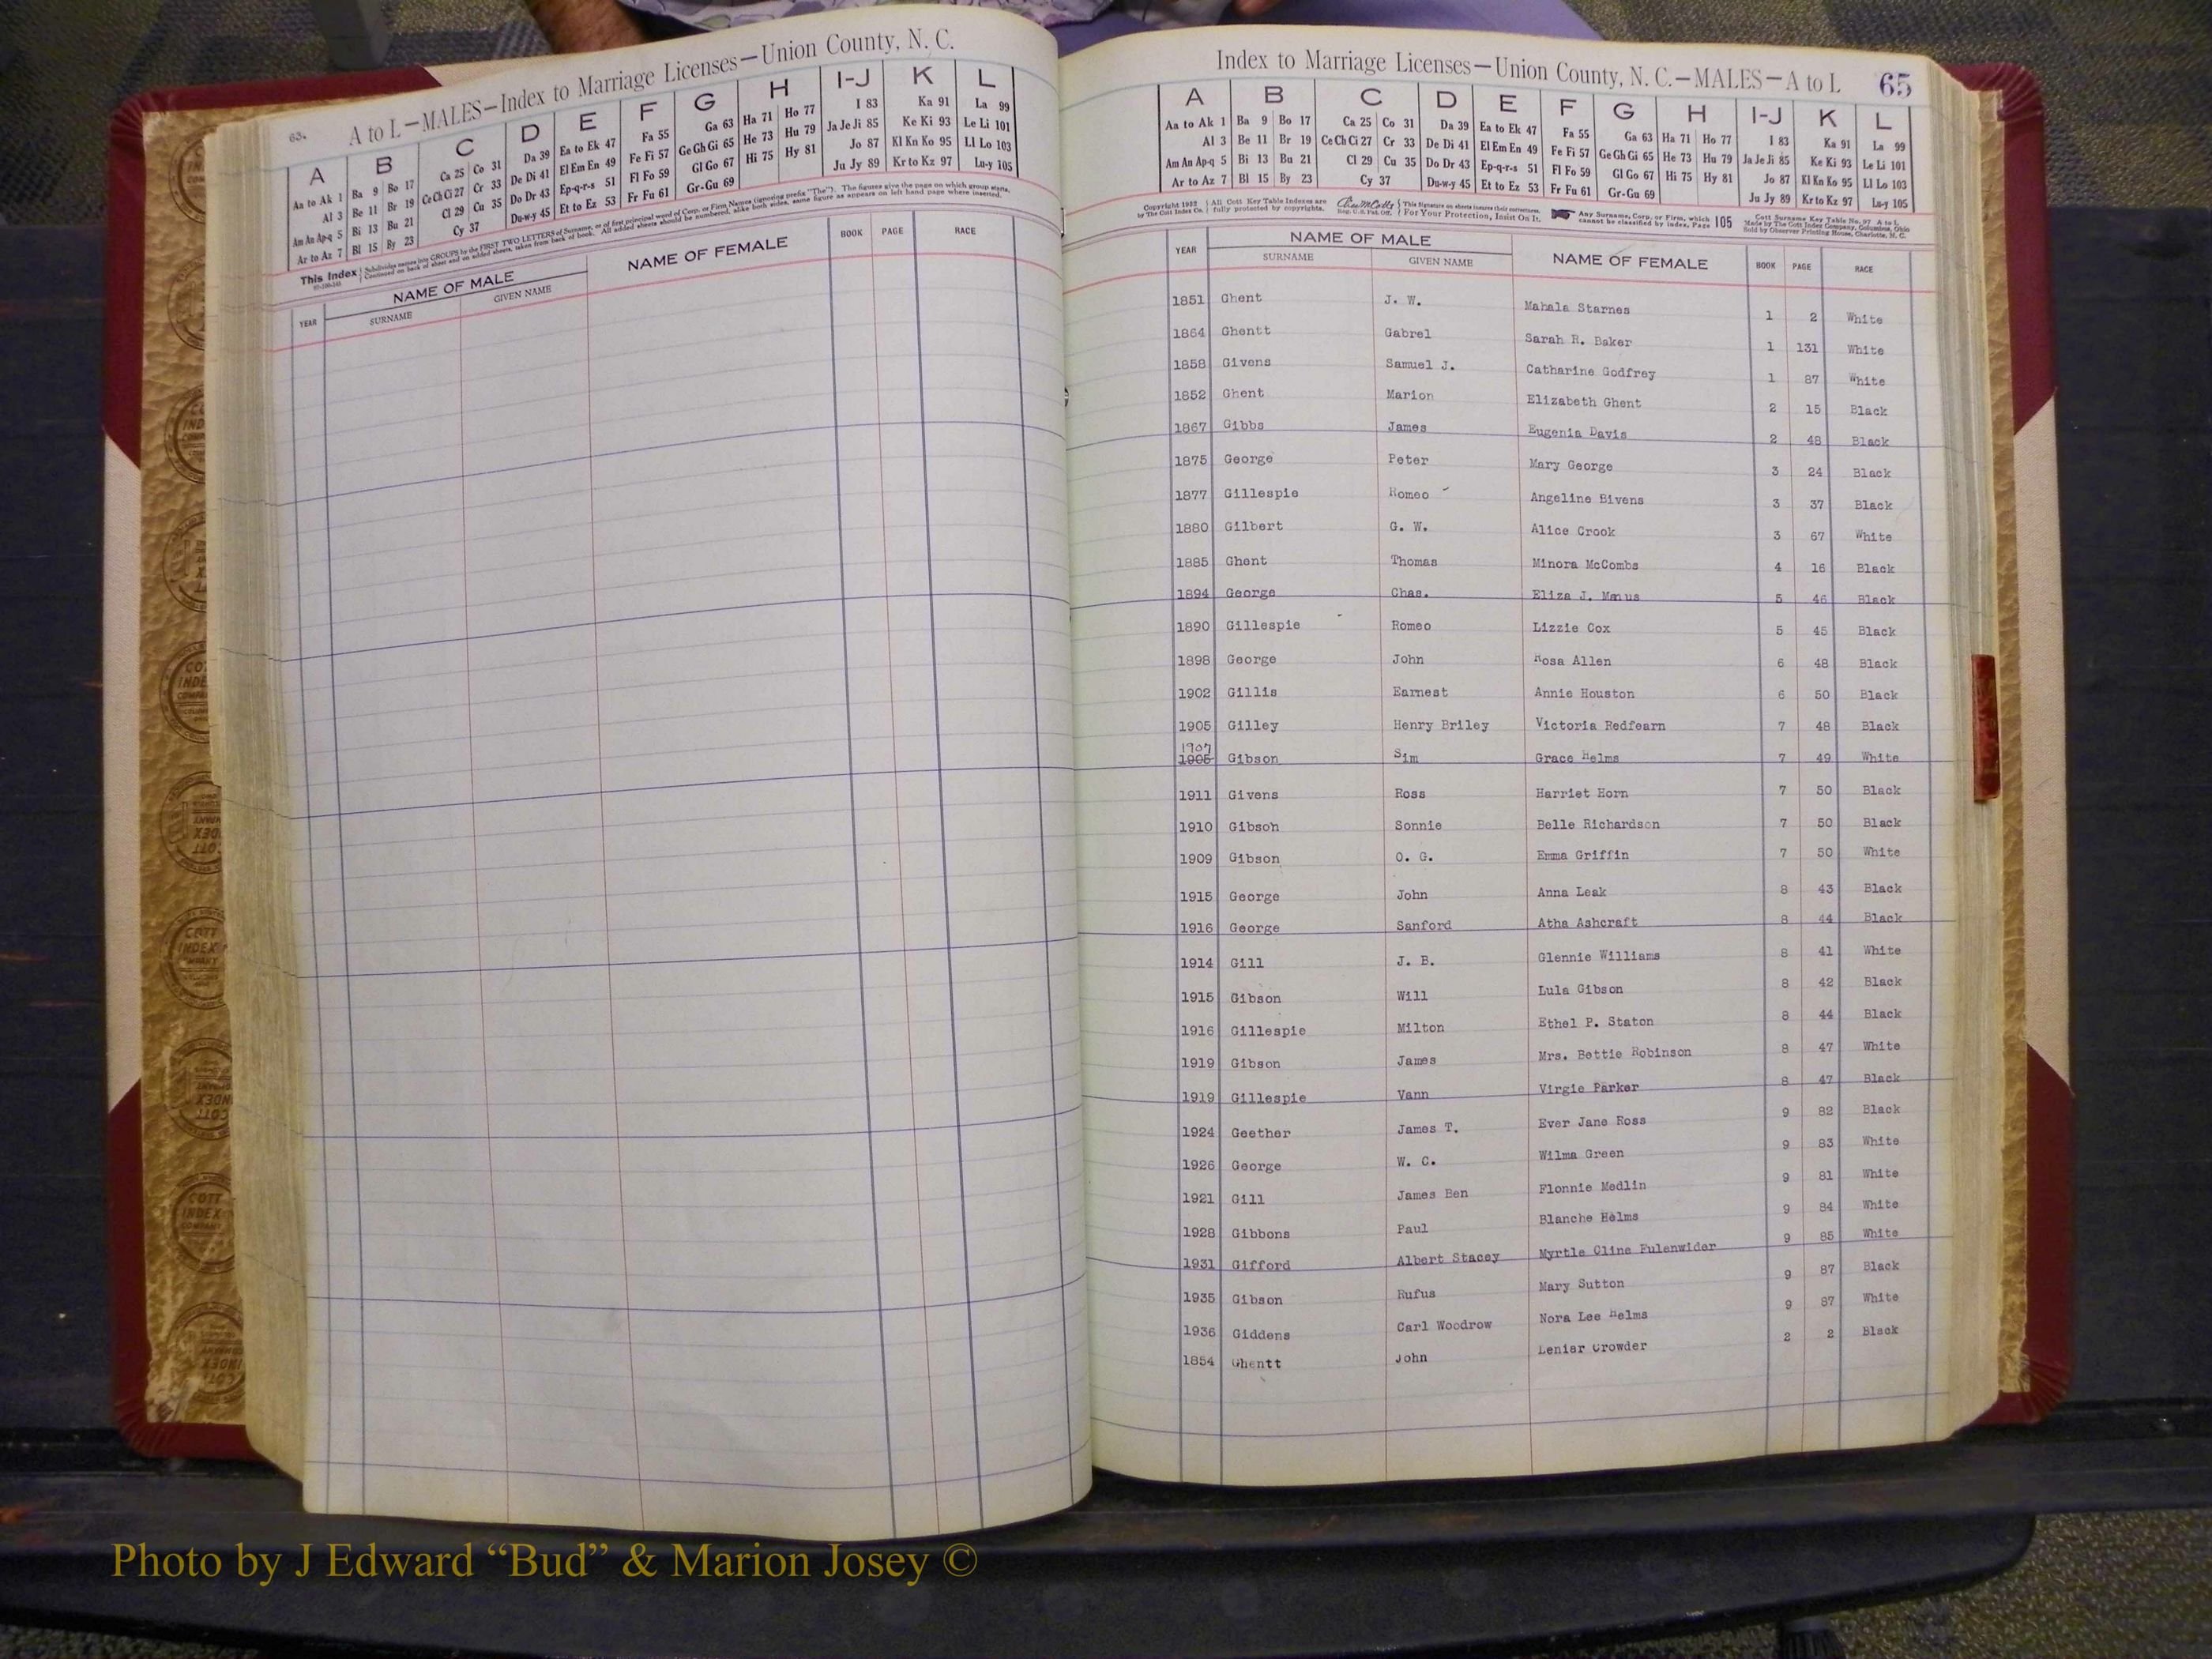 63.
A to L—MALES—Index to Marriage Licenses—Union County, N. C.
A B C D E F G H I-J K L
Aa to Ak 1 Ba 9 Bo 17 Ca 25 Co 31 Da 39 Ea to Ek 47 Fa 55 Ga 63 Ha 71 Ho 77 I 83 Ka 91 La 99
Al 3 Be 11 Br 19 Ce Ch Ci 27 Cr 33 De Di 41 El Em En 49 Fe Fi 57 Ge Gh Gi 65 He 73 Hu 79 Ja Je Ji 85 Ke Ki 93 Le Li 101
Am An Ap-q 5 Bi 13 Bu 21 Cl 29 Cu 35 Do Dr 43 Ep-q-r-s 51 Fl Fo 59 Gl Go 67 Hi 75 Hy 81 Jo 87 Kl Kn Ko 95 Ll Lo 103
Ar to Az 7 Bl 15 By 23 Cy 37 Du-w-y 45 Et to Ez 53 Fr Fu 61 Gr-Gu 69 Ju Jy 89 Kr to Kz 97 Lu-y 105
This Index Subdivides names into GROUPS by the FIRST TWO LETTERS of Surname, or of first principal word of Corp. or Firm Names (ignoring prefix "The"). The figures give the page on which group starts.
Continued on back of sheet and on added sheets, taken from back of book. All added sheets should be numbered, alike both sides, same figure as appears on left hand page where inserted.
YEAR NAME OF MALE NAME OF FEMALE BOOK PAGE RACE
SURNAME GIVEN NAME
Index to Marriage Licenses—Union County, N. C.—MALES—A to L 65
A B C D E F G H I-J K L
Aa to Ak 1 Ba 9 Bo 17 Ca 25 Co 31 Da 39 Ea to Ek 47 Fa 55 Ga 63 Ha 71 Ho 77 I 83 Ka 91 La 99
Al 3 Be 11 Br 19 Ce Ch Ci 27 Cr 33 De Di 41 El Em En 49 Fe Fi 57 Ge Gh Gi 65 He 73 Hu 79 Ja Je Ji 85 Ke Ki 93 Le Li 101
Am An Ap-q 5 Bi 13 Bu 21 Cl 29 Cu 35 Do Dr 43 Ep-q-r-s 51 Fl Fo 59 Gl Go 67 Hi 75 Hy 81 Jo 87 Kl Kn Ko 95 Ll Lo 103
Ar to Az 7 Bl 15 By 23 Cy 37 Du-w-y 45 Et to Ez 53 Fr Fu 61 Gr-Gu 69 Ju Jy 89 Kr to Kz 97 Lu-y 105
Copyright 1932 by The Cott Index Co. All Cott Key Table Indexes are fully protected by copyrights. Reg. U.S. Pat. Off. This Signature on sheets insures their correctness. For Your Protection, Insist On It. Any Surname, Corp. or Firm, which cannot be classified by index, Page 105 Cott Surname Key Table No. 97 A to L Made by The Cott Index Company, Columbus, Ohio Sold by Observer Printing House, Charlotte, N. C.
YEAR NAME OF MALE NAME OF FEMALE BOOK PAGE RACE
SURNAME GIVEN NAME
1851 Ghent J. W. Mahala Starnes 1 2 White
1864 Ghentt Gabrel Sarah R. Baker 1 131 White
1858 Givens Samuel J. Catharine Godfrey 1 87 White
1852 Ghent Marion Elizabeth Ghent 2 15 Black
1867 Gibbs James Eugenia Davis 2 48 Black
1875 George Peter Mary George 3 24 Black
1877 Gillespie Romeo Angeline Bivens 3 37 Black
1880 Gilbert G. W. Alice Crook 3 67 White
1885 Ghent Thomas Minora McCombs 4 16 Black
1894 George Chas. Eliza J. 5 46 Black
1890 Gillespie Romeo Lizzie Cox 5 45 Black
1898 George John Rosa Allen 6 48 Black
1902 Gillis Earnest Annie Houston 6 50 Black
1905 Gilley Henry Briley Victoria Redfearn 7 48 Black
1907
1905 Gibson Sim Grace Helms 7 49 White
1911 Givens Ross Harriet Horn 7 50 Black
1910 Gibson Sonnie Belle Richardson 7 50 Black
1909 Gibson O. G. Emma Griffin 7 50 White
1915 George John Anna Leak 8 43 Black
1916 George Sanford Atha Ashcraft 8 44 Black
1914 Gill J. B. Glennie Williams 8 41 White
1915 Gibson Will Lula Gibson 8 42 Black
1916 Gillespie Milton Ethel P. Staton 8 44 Black
1919 Gibson James Mrs. Bettie Robinson 8 47 White
1919 Gillespie Vann Virgie Parker 8 47 Black
1924 Geether James T. Ever Jane Ross 9 82 Black
1926 George W. C. Wilma Green 9 83 White
1921 Gill James Ben Flonnie Medlin 9 81 White
1928 Gibbons Paul Blanche Helms 9 84 White
1931 Gifford Albert Stacey Myrtle Cline Fulenwider 9 85 White
1935 Gibson Rufus Mary Sutton 9 87 Black
1936 Giddens Carl Woodrow Nora Lee Helms 9 87 White
1854 Ghentt John Leniar Crowder 2 2 Black
Photo by J Edward “Bud” & Marion Josey ©